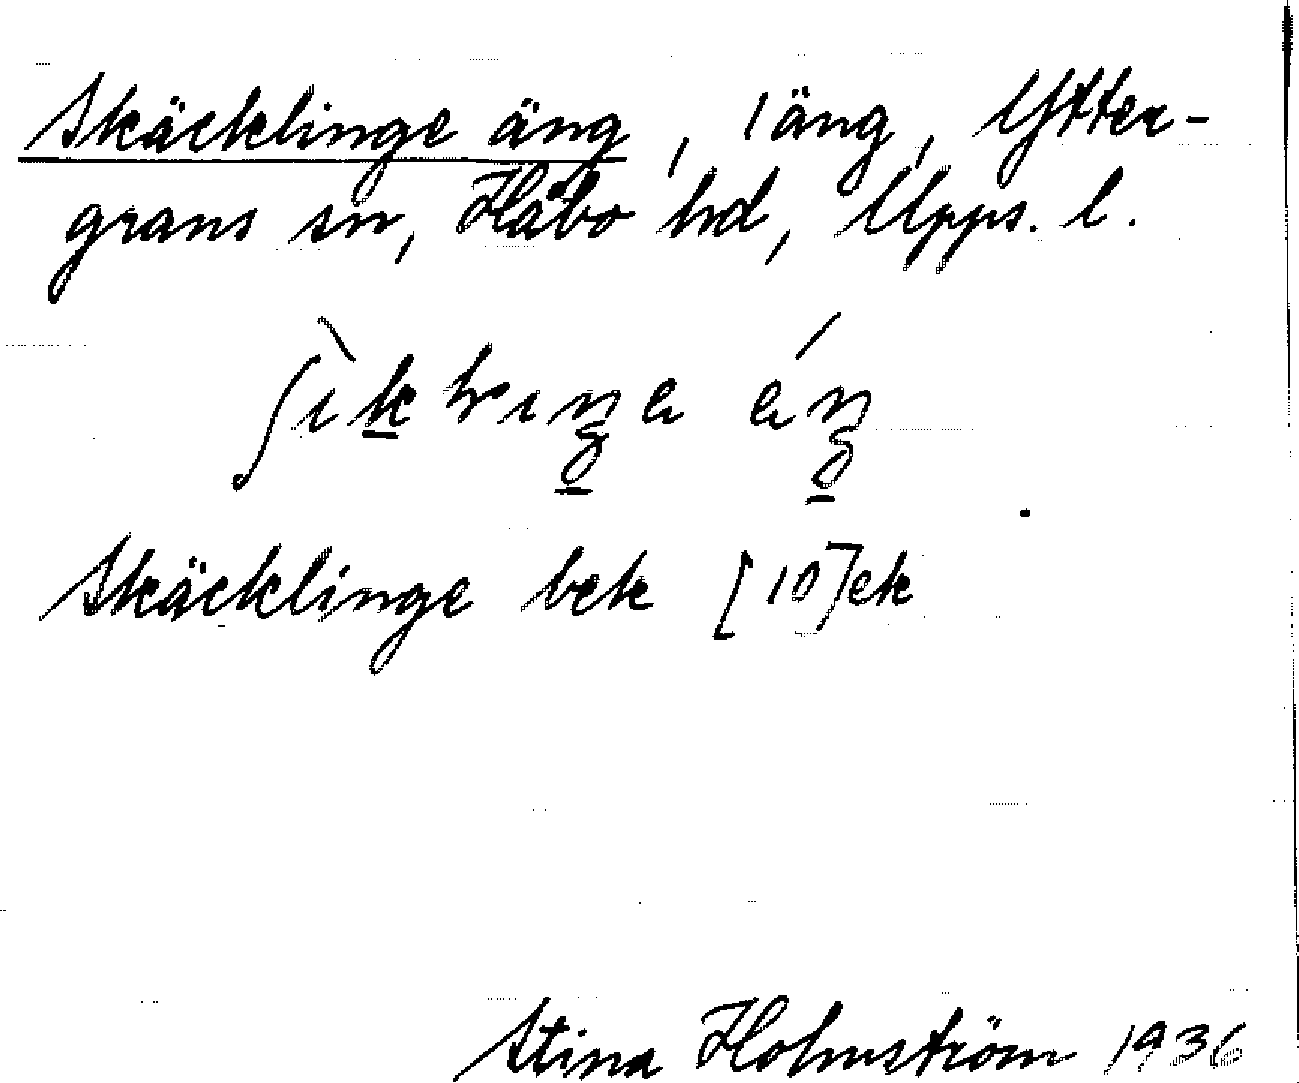 Skäcklinge äng, 1 äng, Ytter-
grans sn, Håbo hd, Upps. l.
Skäcklinge bek [10] ek
Stina Holmström 1936